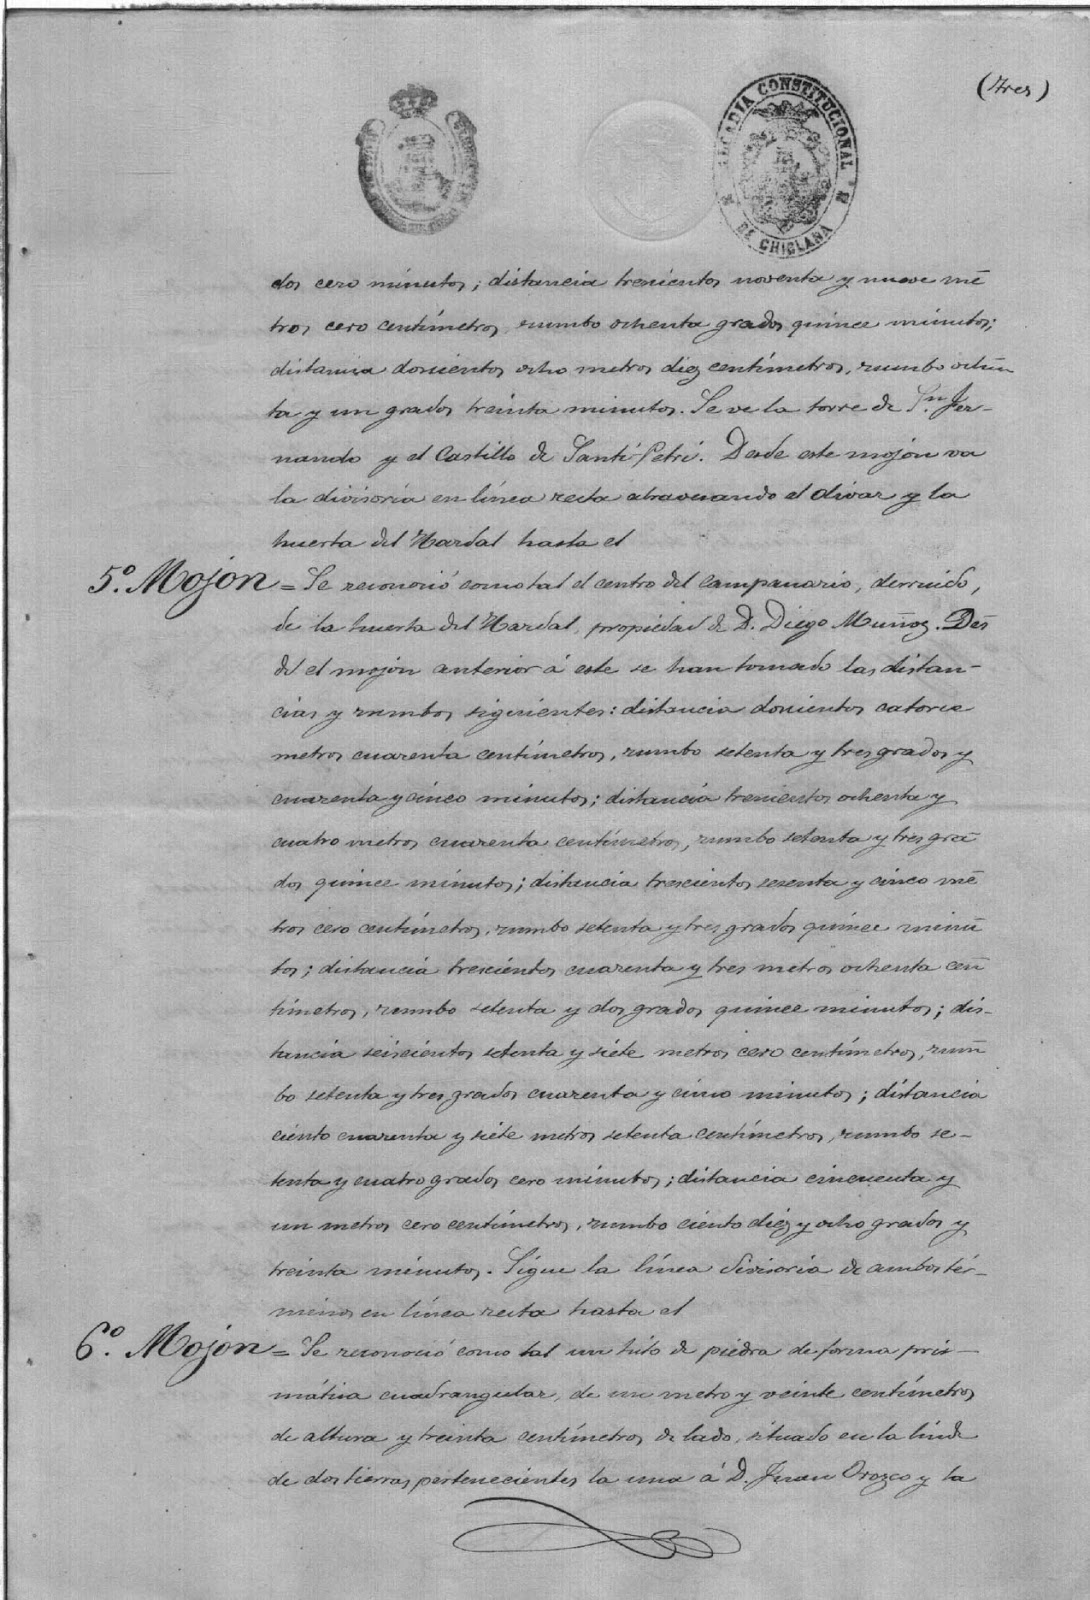 (tres)
ALCALDIA CONSTITUCIONAL
DE CHICLANA
dos cero minutos; distancia trecientos noventa y nueve mē
tros cero centímetros, rumbo ochenta grados quince minutos;
distancia doscientos ocho metros diez centímetros, rumbo ochēn
ta y un grados treinta minutos. Se ve la torre de Sn. Fer-
nando y el Castillo de Santi Petri. Desde este mojón va
la divisoria en línea recta atravesando el olivar y la
huerta del Nardal hasta el
5º. Mojon = Se reconoció como tal el centro del campanario, derruido,
de la huerta del Nardal, propiedad de D. Diego Muñoz. Des
del el mojon anterior á este se han tomado las distan-
cias y rumbos siguientes: distancia doscientos catorce
metros cuarenta centímetros, rumbo setenta y tres grados y
cuarenta y cinco minutos; distancia trecientos ochenta y
cuatro metros cuarenta centímetros, rumbo setenta y tres grā
dos quince minutos; distancia trescientos sesenta y cinco mē
tros cero centímetros, rumbo setenta y tres grados quince minū
tos; distancia trescientos cuarenta y tres metros ochenta cen̄
tímetros, rumbo setenta y dos grados quince minutos; dis-
tancia seiscientos setenta y siete metros cero centímetros, rum̄
bo setenta y tres grados cuarenta y cinco minutos; distancia
ciento cuarenta y siete metros setenta centímetros, rumbo se-
tenta y cuatro grados cero minutos; distancia cincuenta y
un metros cero centímetros, rumbo ciento diez y ocho grados y
treinta minutos. Sigue la línea divisoria de ambos tér-
minos en línea recta hasta el
6º. Mojon = Se reconoció como tal un hito de piedra de forma pris-
mática cuadrangular, de un metro y veinte centímetros
de altura y treinta centímetros de lado, situado en la linde
de dos tierras pertenecientes la una á D. Juan Orozco y la